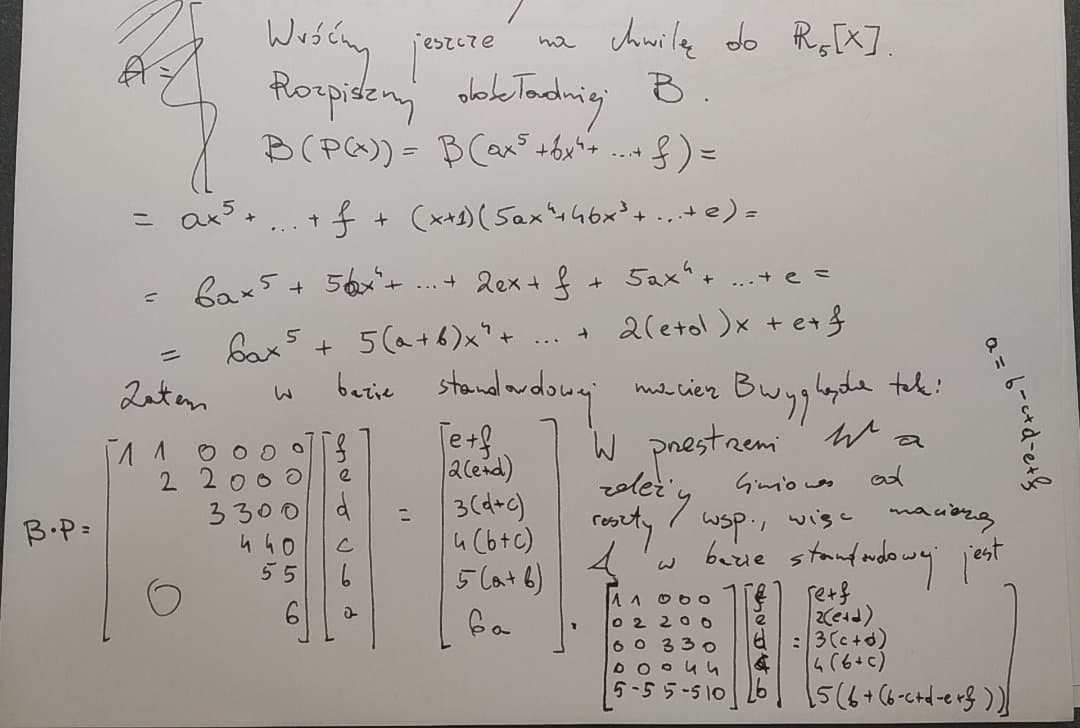 Wróćmy jeszcze na chwilę do R₅[X].
A =
Rozpiszmy dokładniej B.
B(P(x)) = B(ax⁵+bx⁴+...+f) =
= ax⁵+...+f + (x+1)(5ax⁴+4bx³+...+e) =
= 6ax⁵ + 5bx⁴+ ...+ 2ex+f + 5ax⁴+ ...+e =
= 6ax⁵ + 5(a+b)x⁴+ ... + 2(e+d)x + e+f
Zatem w bazie standardowej macierz B wygląda tak:
B·P =
1 1 0 0 0 0
2 2 0 0 0
3 3 0 0
4 4 0
5 5
0 6
f
e
d
c
b
a
=
e+f
2(e+d)
3(d+c)
4(b+c)
5(a+b)
6a
.
W przestrzeni W a
zależy liniowo od
reszty wsp., więc macierzą
A w bazie standardowej jest
1 1 0 0 0
0 2 2 0 0
0 0 3 3 0
0 0 0 4 4
5 -5 5 -5 10
f
e
d
c
b
=
e+f
2(e+d)
3(c+d)
4(b+c)
5(b+(b-c+d-e+f))
a=b-c+d-e+f